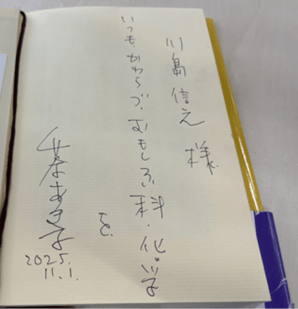 川島信之 様
いつもかわらず、おもしろ科・化学
を
あき子
2025.
11.1.